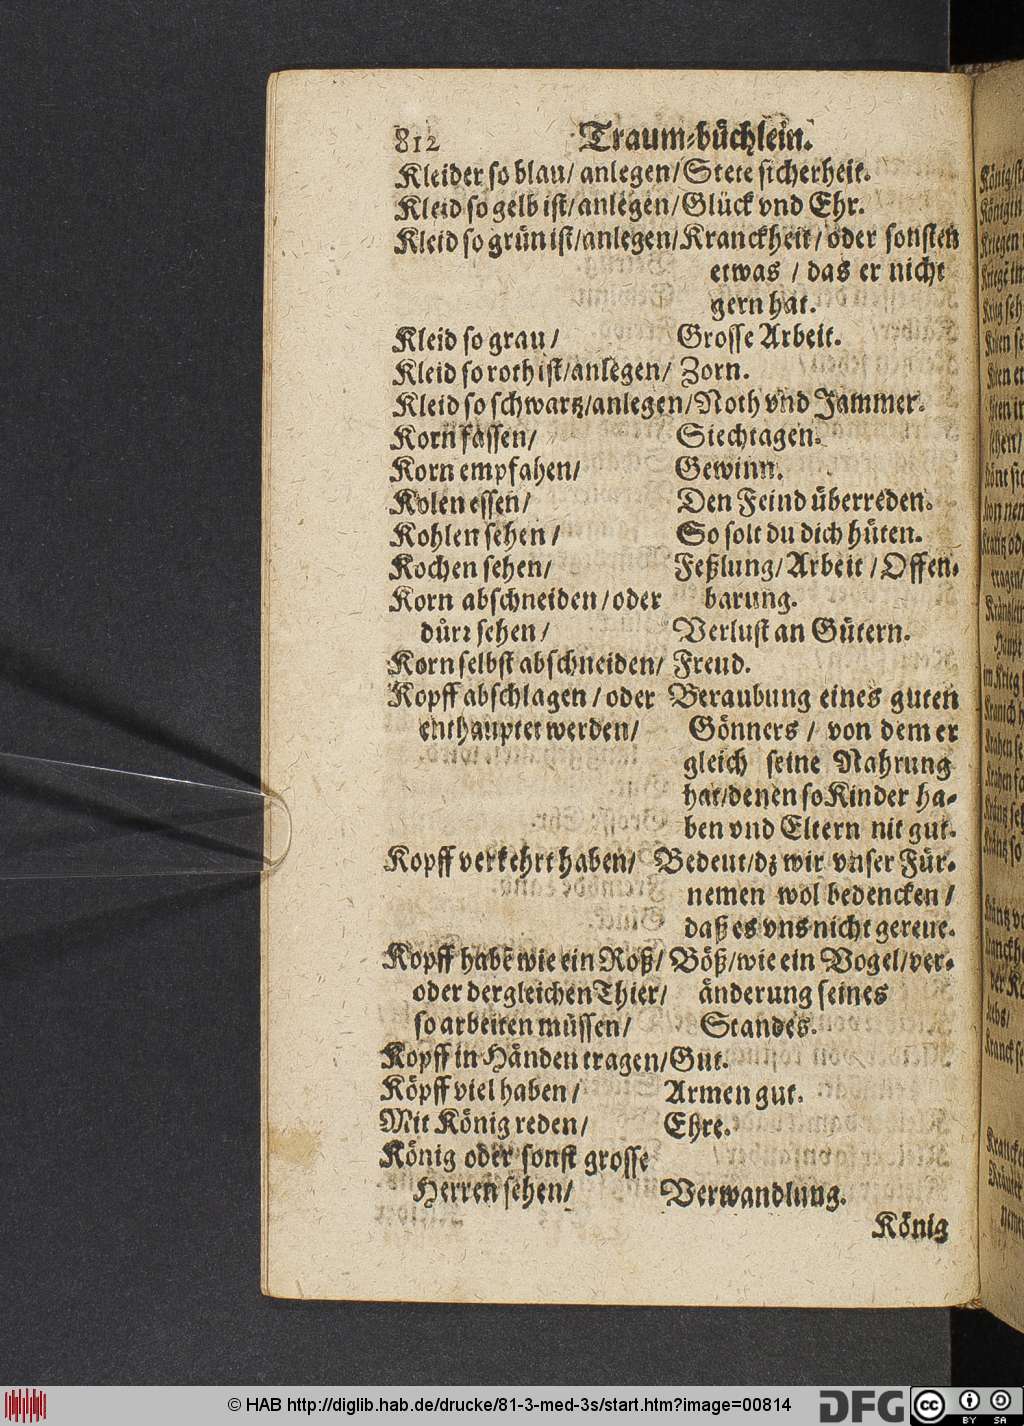 812 Traum-büchlein.
Kleider so blau/ anlegen/ Stete sicherheit.
Kleid so gelb ist/ anlegen/ Glück vnd Ehr.
Kleid so grün ist/ anlegen/ Kranckheit/ oder sonsten
etwas / das er nicht
gern hat.
Kleid so grau / Grosse Arbeit.
Kleid so roth ist/ anlegen/ Zorn.
Kleid so schwartz/ anlegen/ Noth vnd Jammer.
Korn fassen/ Siechtagen.
Korn empfahen/ Gewinn.
Kolen essen/ Den Feind überreden.
Kohlen sehen / So solt du dich hüten.
Kochen sehen/ Feßlung/ Arbeit / Offen-
Korn abschneiden / oder barung.
dürr sehen / Verlust an Gütern.
Korn selbst abschneiden/ Freud.
Kopff abschlagen / oder Beraubung eines guten
enthauptet werden/ Gönners / von dem er
gleich seine Nahrung
hat/ denen so Kinder ha-
ben vnd Eltern nit gut.
Kopff verkehrt haben/ Bedeut/ dz wir vnser Für-
nemen wol bedencken /
daß es vns nicht gereue.
Kopff habē wie ein Roß/ Böß/ wie ein Vogel/ ver-
oder dergleichen Thier/ änderung seines
so arbeiten müssen/ Standes.
Kopff in Händen tragen/ Gut.
Köpff viel haben / Armen gut.
Mit König reden/ Ehre.
König oder sonst grosse
Herren sehen/ Verwandlung.
König
© HAB http://diglib.hab.de/drucke/81-3-med-3s/start.htm?image=00814
DFG
cc BY SA